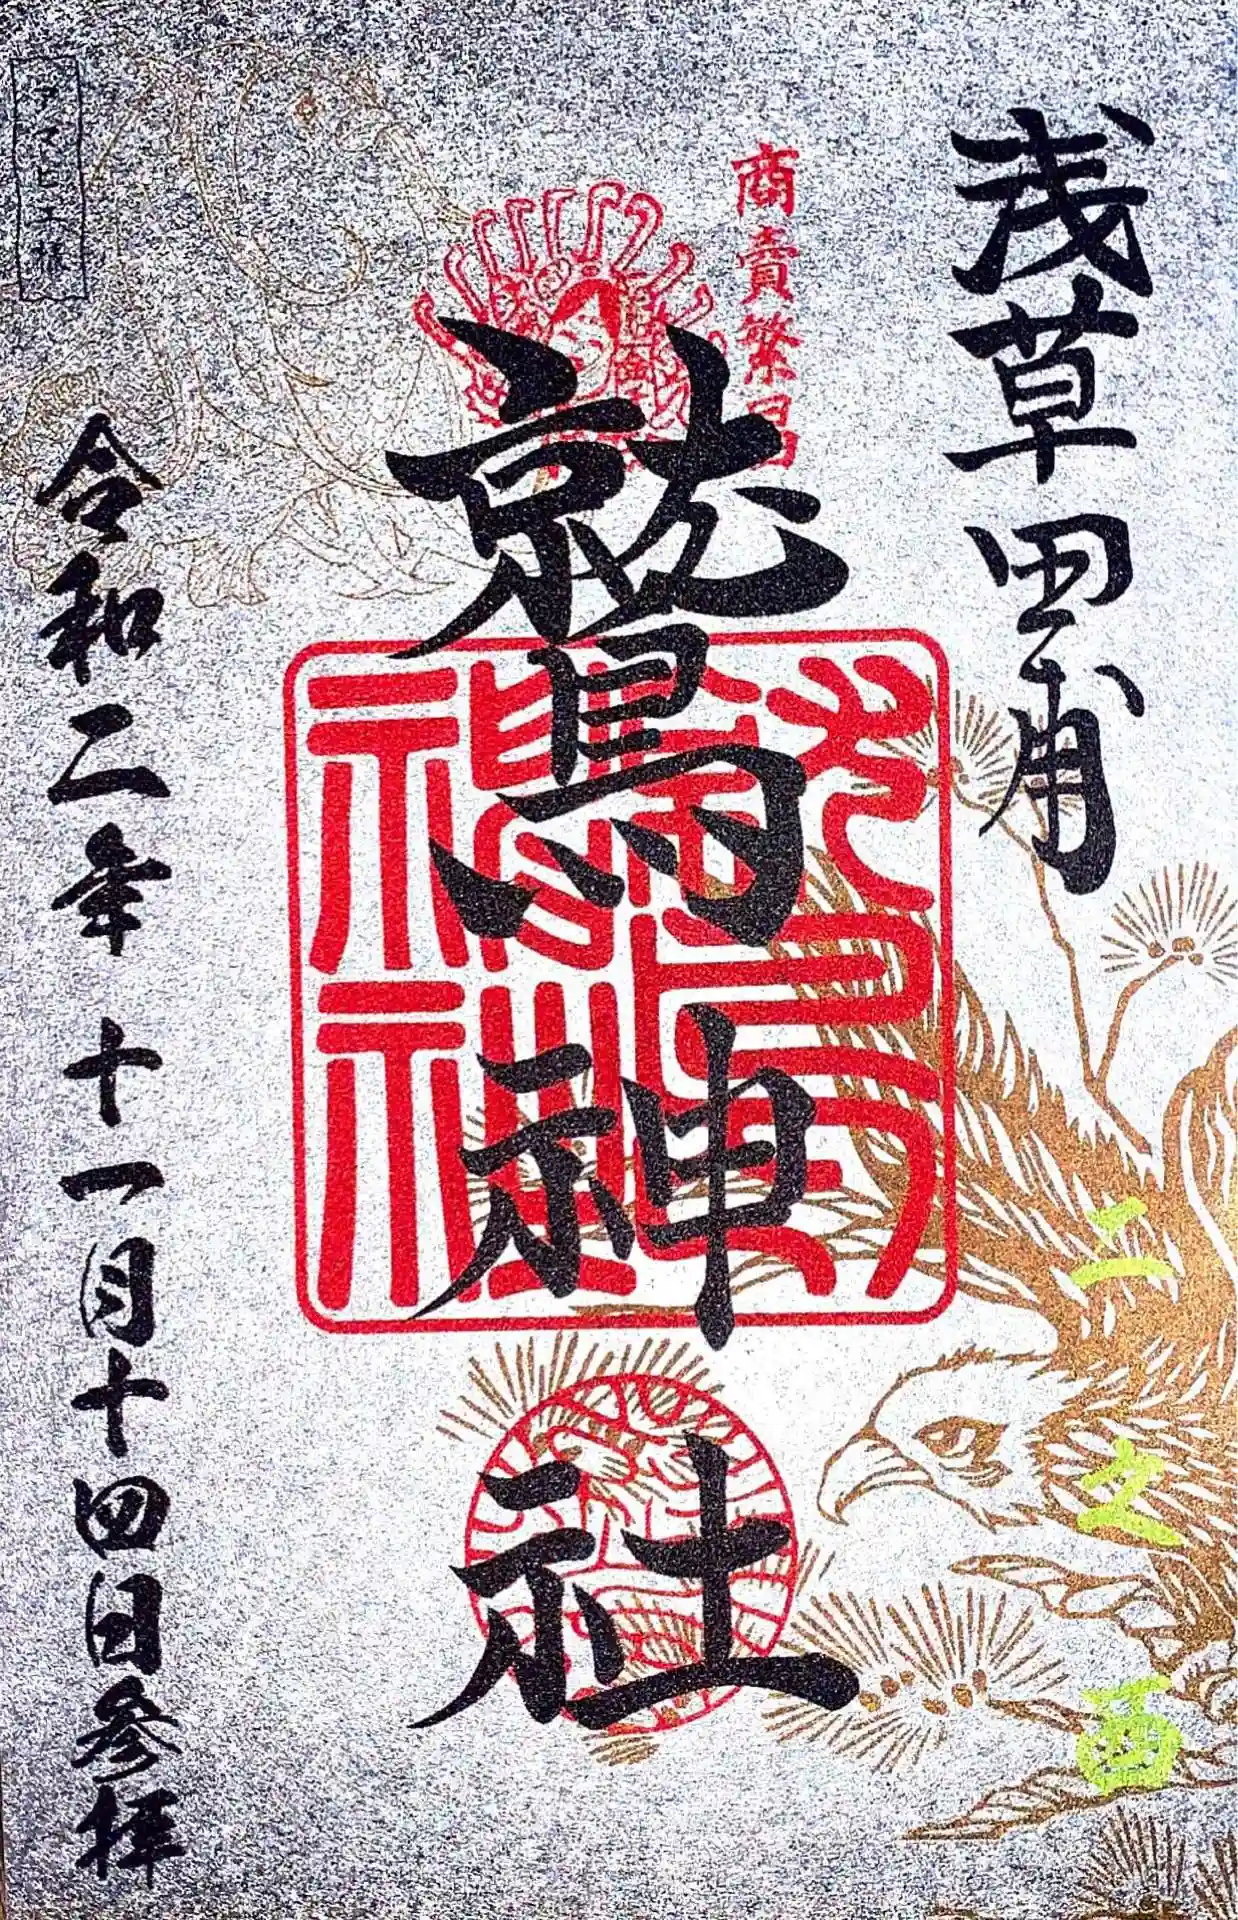 浅草田甫
商賣繁昌
鷲神社
二之酉
令和二年十一月十四日参拝
アマビエ様